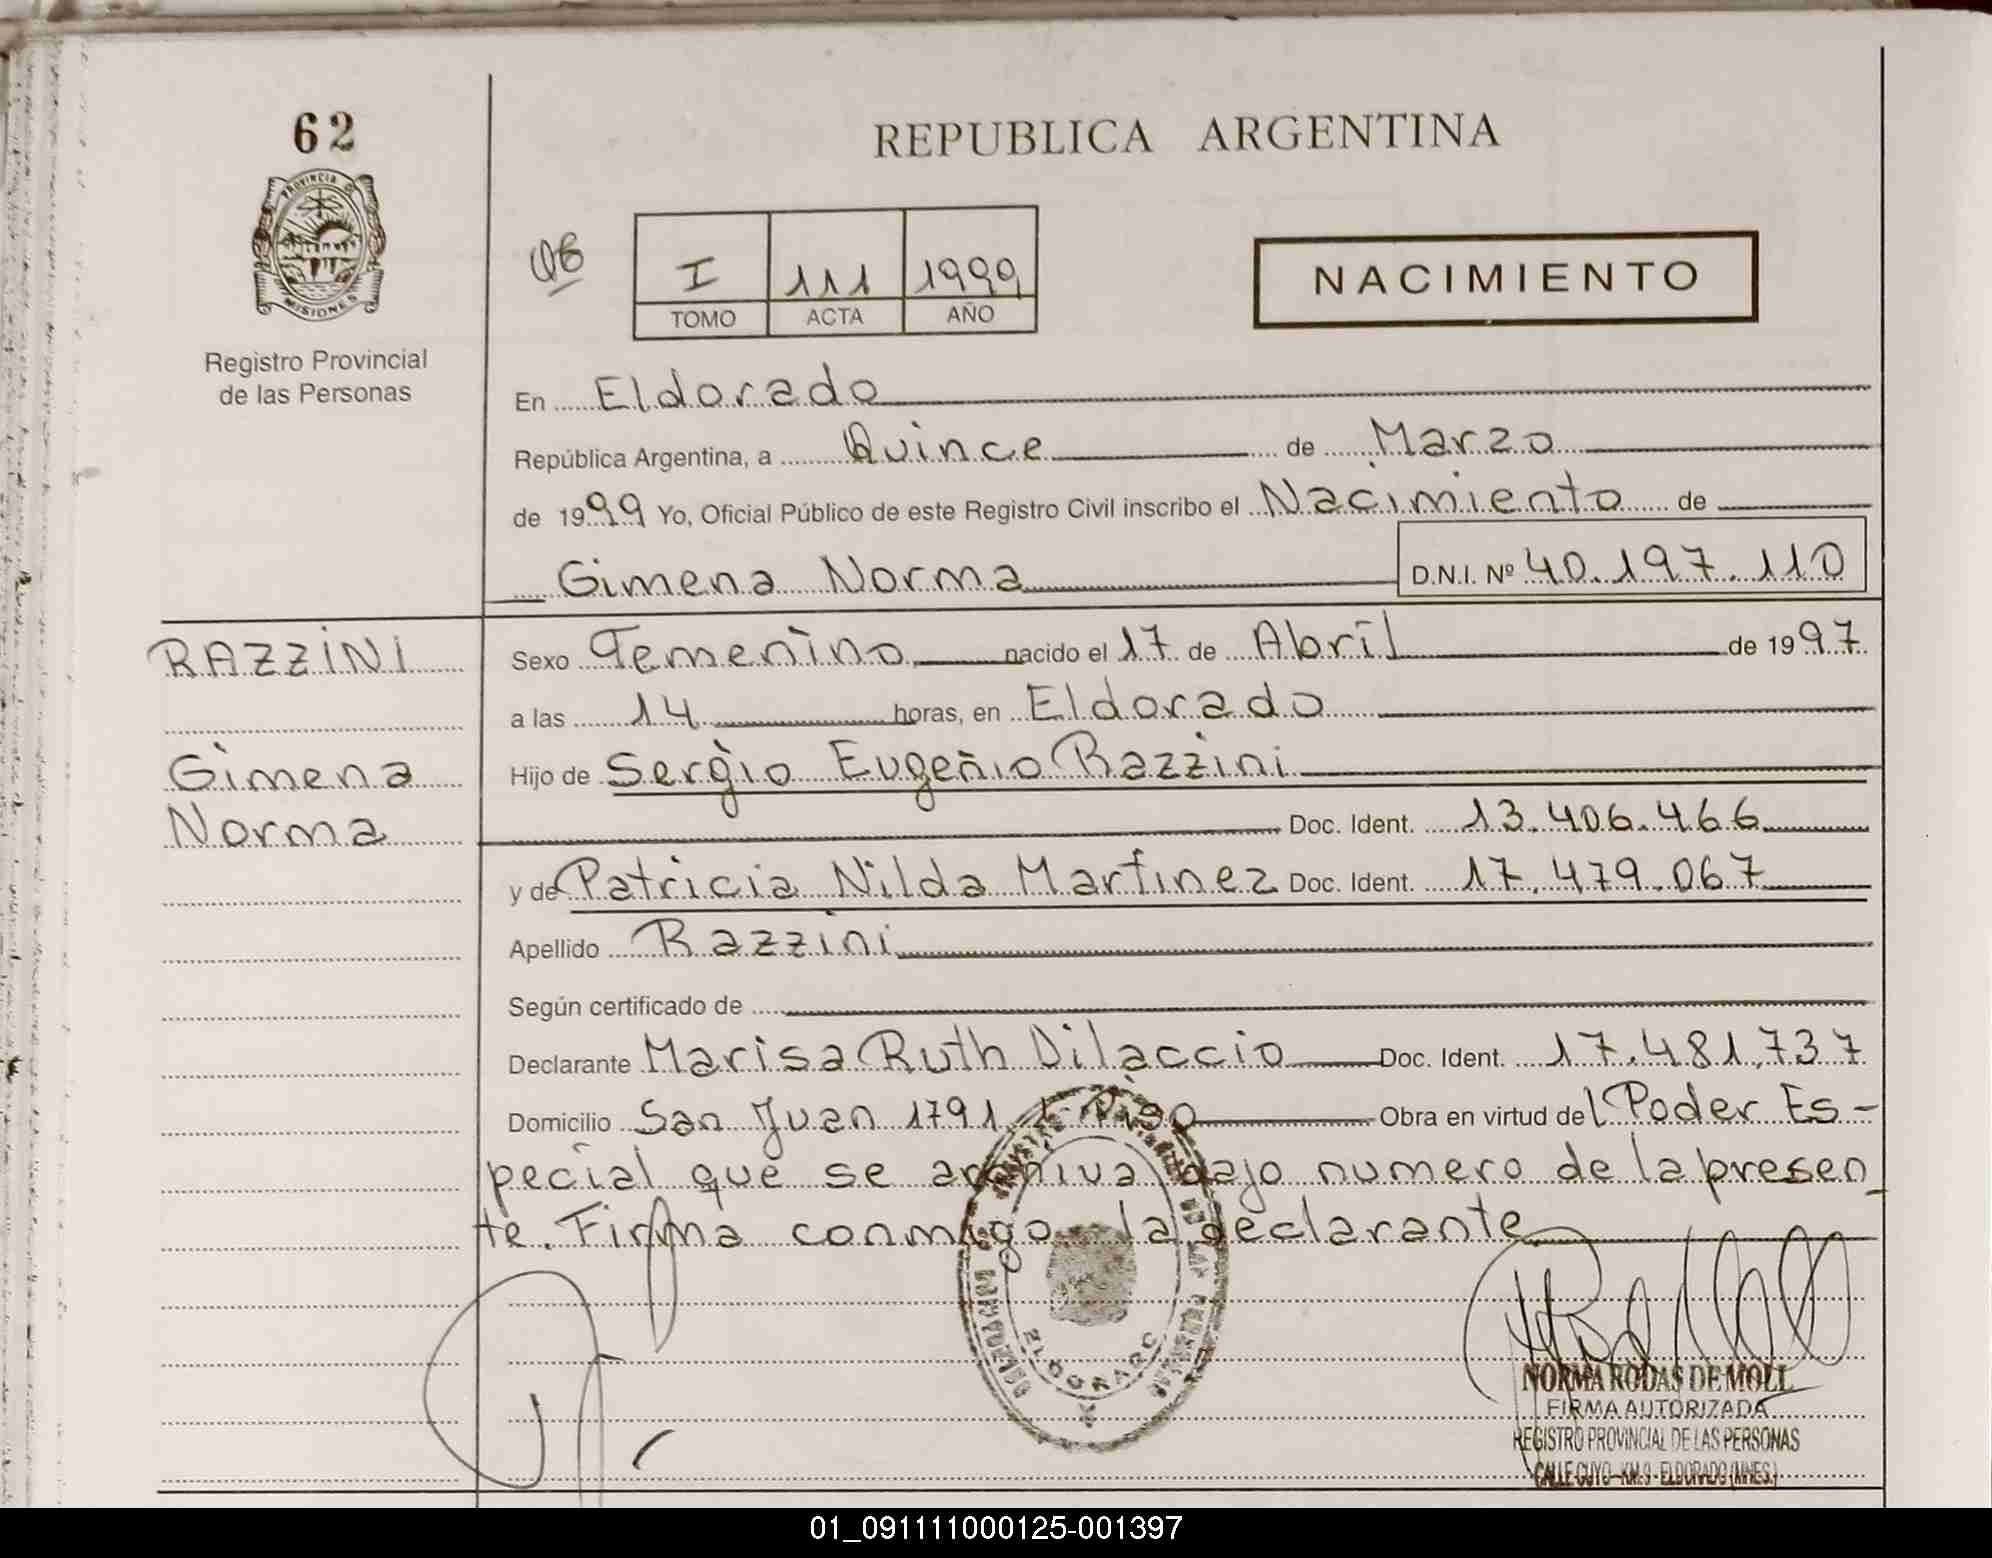 62
REPUBLICA ARGENTINA
PROVINCIA DE
MISIONES
Registro Provincial
de las Personas
I 111 1999
TOMO ACTA AÑO
NACIMIENTO
En Eldorado
República Argentina, a Quince de Marzo
de 1999 Yo, Oficial Público de este Registro Civil inscribo el Nacimiento de
Gimena Norma D.N.I. Nº 40.197.110
RAZZINI
Gimena
Norma
Sexo Femenino nacido el 17 de Abril de 1997
a las 14 horas, en Eldorado
Hijo de Sergio Eugenio Razzini
Doc. Ident. 13.406.466
y de Patricia Nilda Martinez Doc. Ident. 17.479.067
Apellido Razzini
Según certificado de
Declarante Marisa Ruth Dilaccio Doc. Ident. 17.481.737
Domicilio San Juan 1791 Piso Obra en virtud del Poder Es-
pecial que se archiva bajo numero de la presen_
te. Firma conmigo la declarante
ELDORADO
NORMA RODAS DE MOLL
FIRMA AUTORIZADA
REGISTRO PROVINCIAL DE LAS PERSONAS
CALLE CUYO - KM. 9 - ELDORADO (MNES.)
01_091111000125-001397